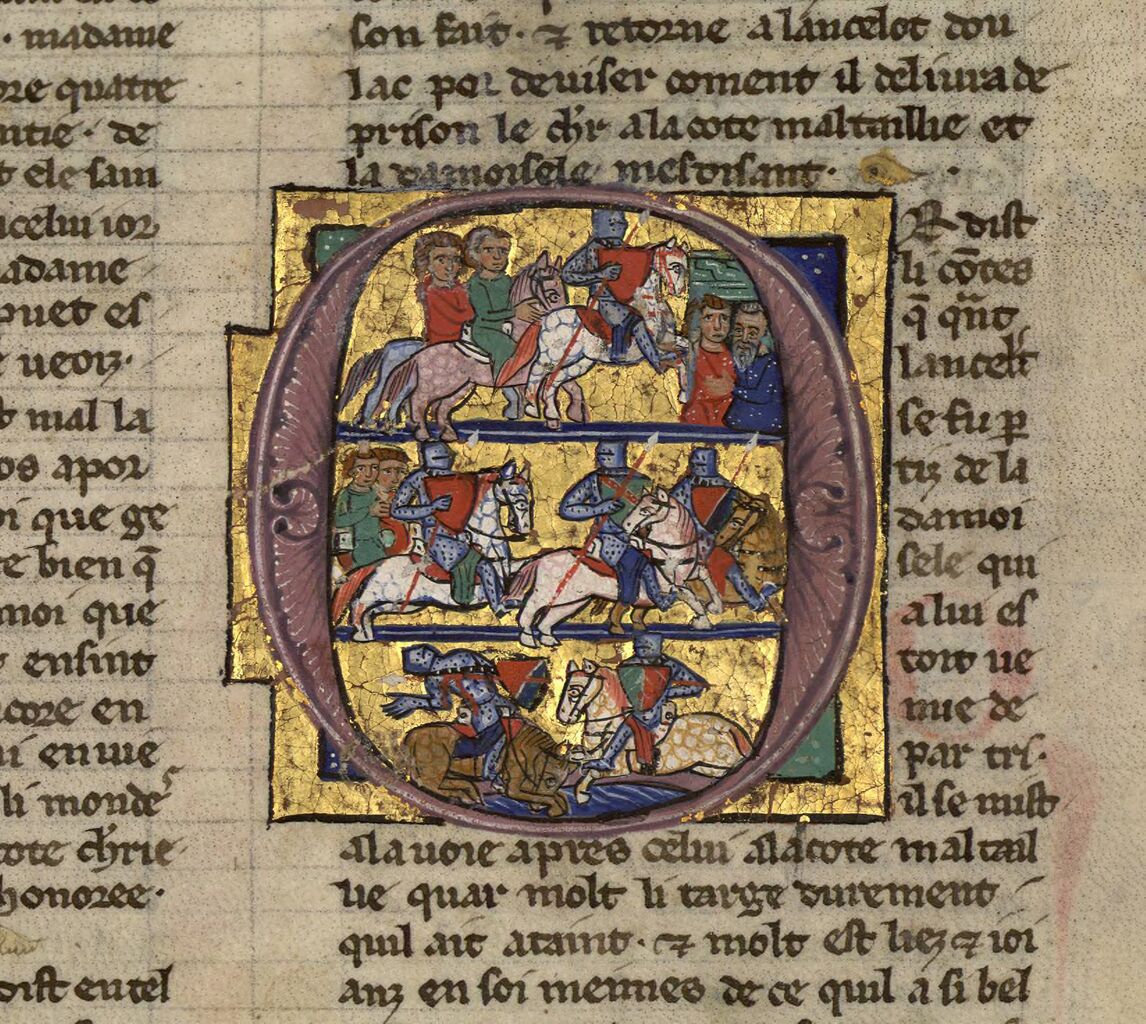 madame
ore quatre
ntie · de
t ele sain
icelui ior
adame
puet es
e ueoir ·
t mal la
os apor
oi que ge
te bien q̃
moi que
ensint
core en
i enuie
li monde
cote ch̃rie
honoree ·
dist en tel
son fait · ⁊ retorne a lancelot dou
lac por deuiser coment il deliura de
prison le ch̃r a la cote maltaillie et
la damoisele mesdisant ·
O R dist
li cõtes
q̃ q̃nt
lancelt̃
se fu p̱
tiz de la
damoi
sele qui
a lui es
toit ue
nue de
par tri ·
il se mist
a la uoie apres celui a la cote maltail
lie quar molt li targe durement
quil ait ataint · ⁊ molt est liez ⁊ ioi
anz en soi meimes de ce quil a si bel